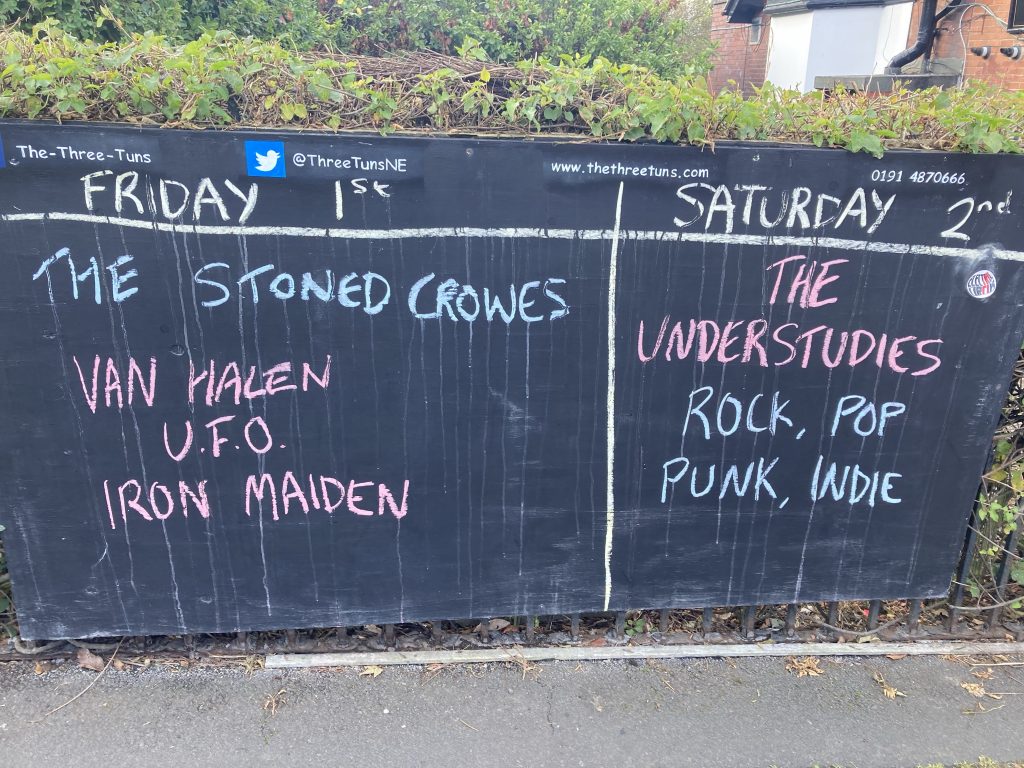 The-Three-Tuns
@ThreeTunsNE
www.thethreetuns.com
0191 4870666
FRIDAY 1st
THE STONED CROWES
VAN HALEN
U.F.O.
IRON MAIDEN
SATURDAY 2nd
THE
UNDERSTUDIES
ROCK, POP
PUNK, INDIE